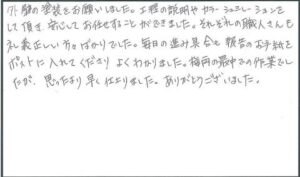 外壁の塗装をお願いしました。工程の説明やカラーシュミレーションをして頂き、安心してお任せすることができました。それぞれの職人さんも礼儀正しい方ばかりでした。毎日の進み具合も報告のお手紙をポストに入れてくださりよくわかりました。梅雨の最中での作業でしたが、思ったより早く仕上りました。ありがとうございました。